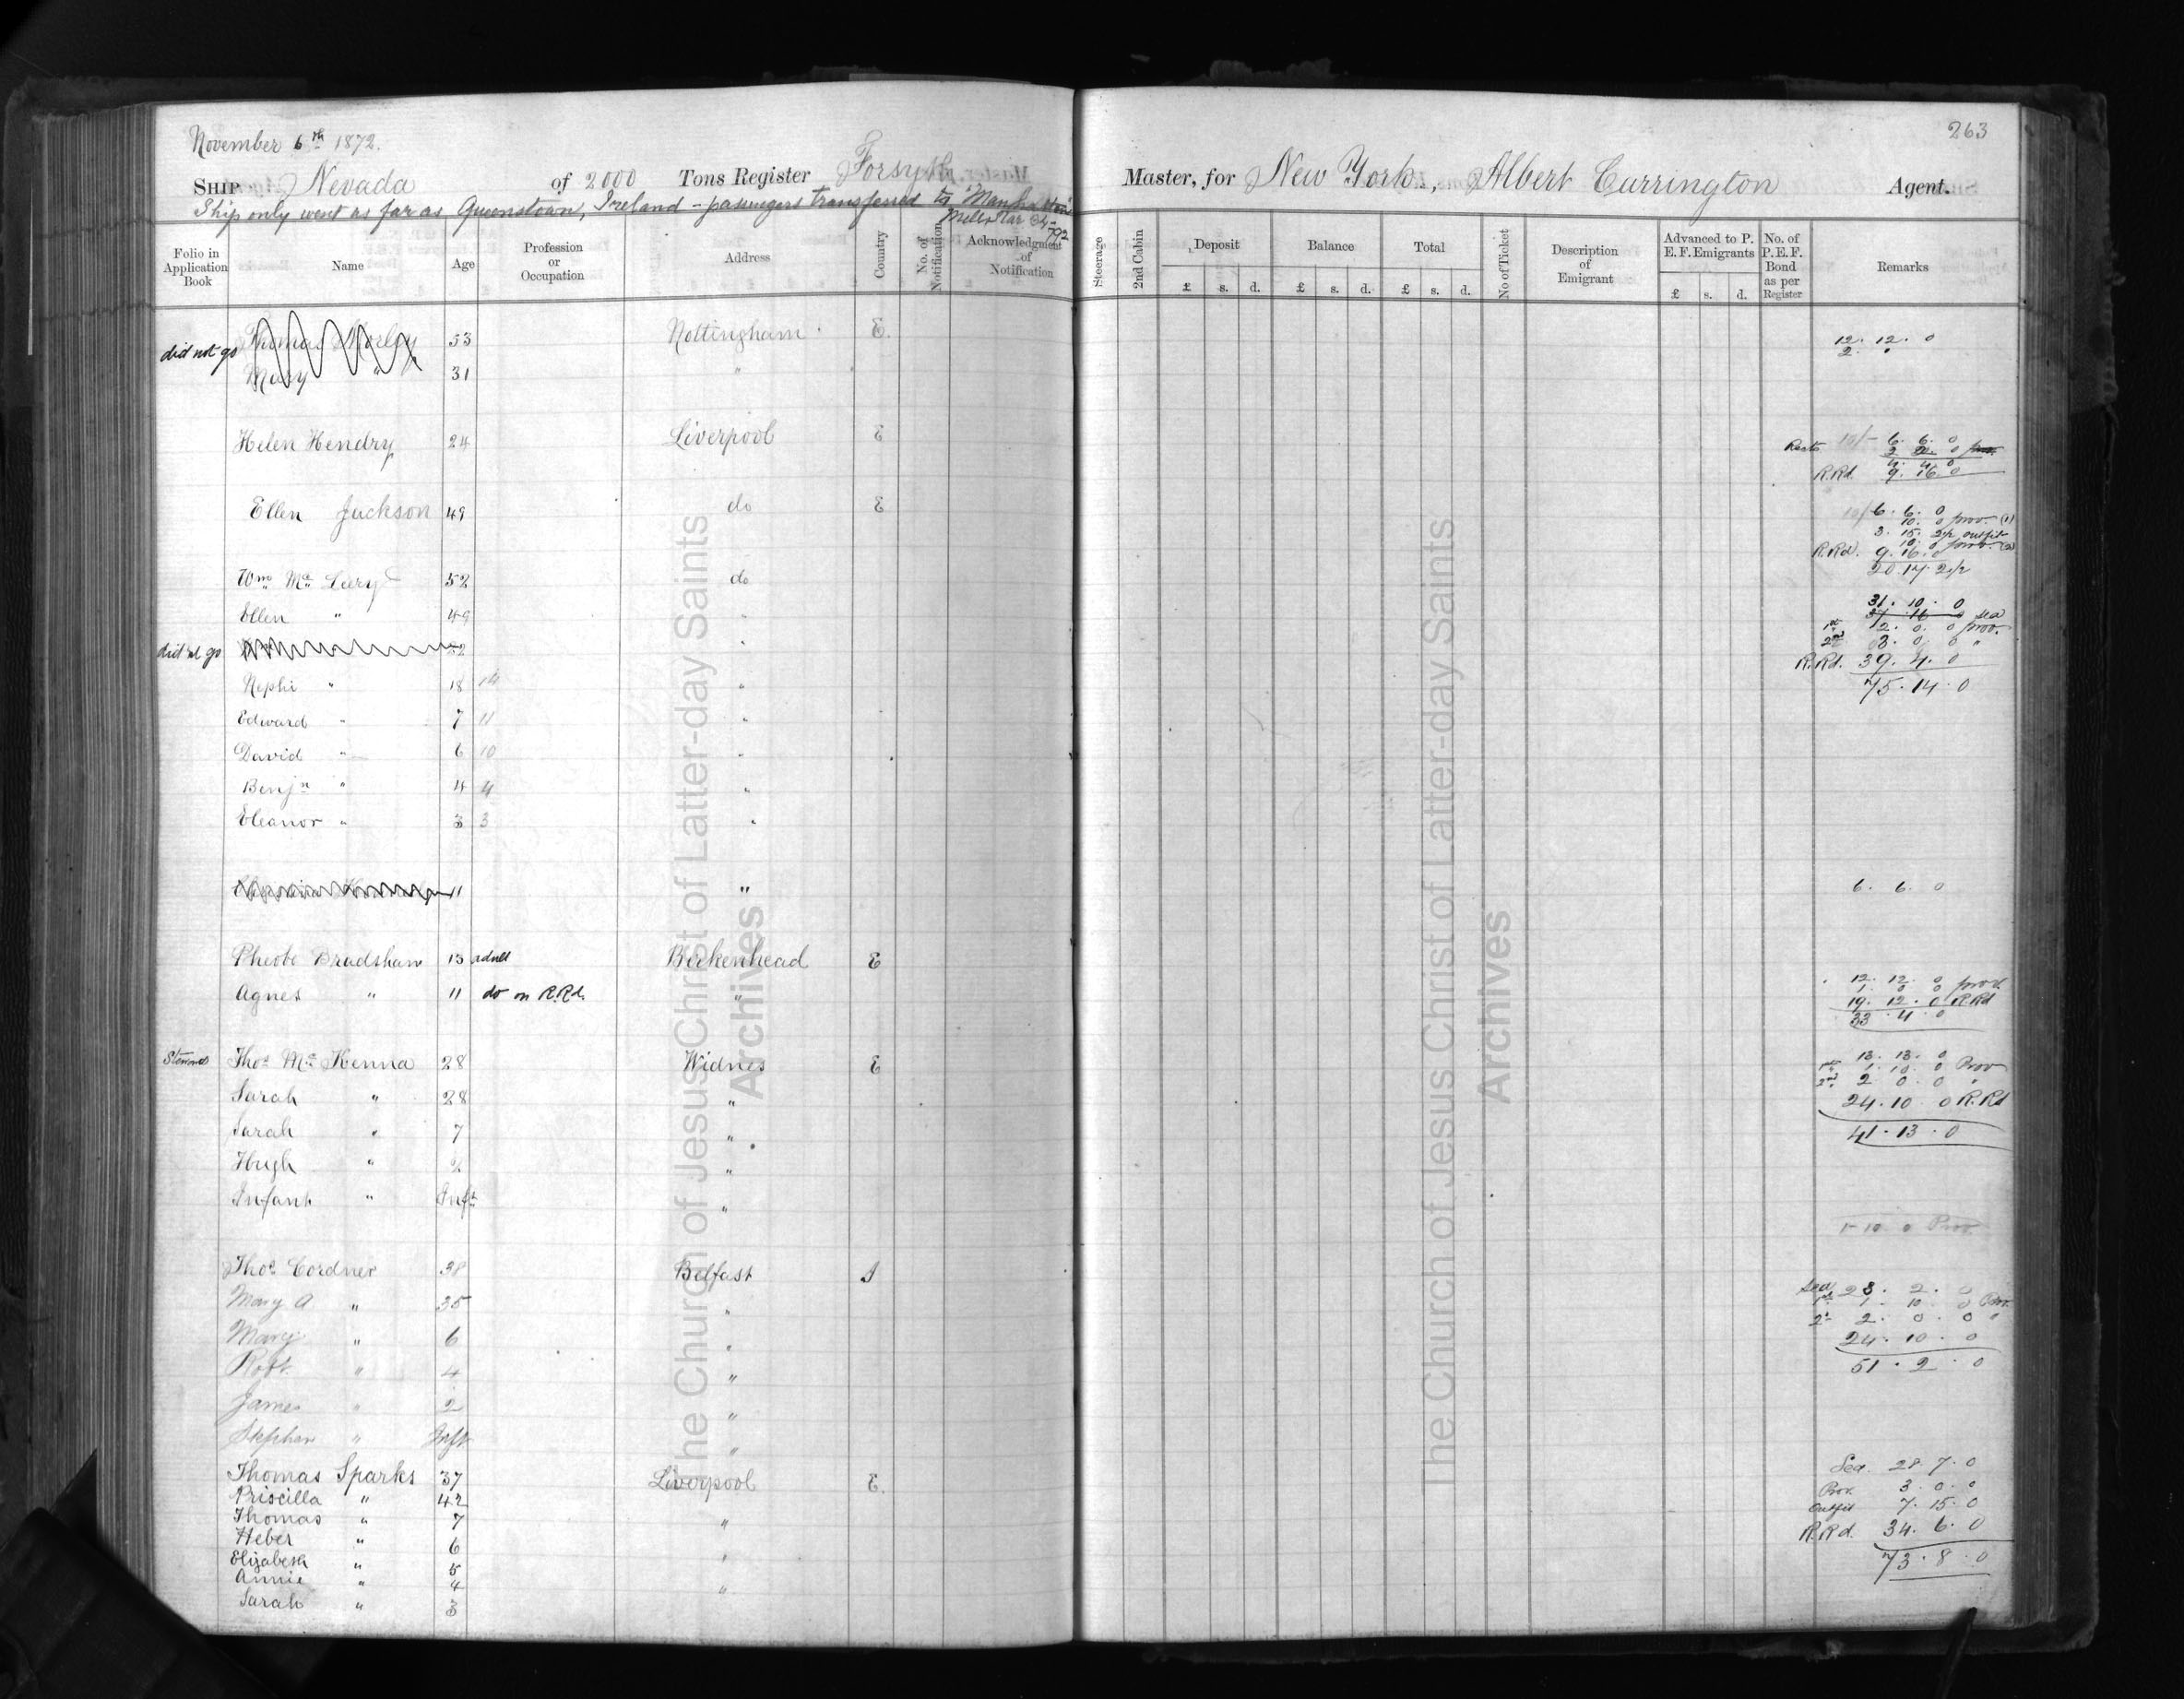 263
November 6th 1872.
SHIP Nevada of 2000 Tons Register Forsyth Master, for New York, Albert Carrington Agent.
Ship only went as far as Queenstown, Ireland - passengers transferred to "Manhattan"
Mill. Star 34-792
Folio in Application Book Name Age Profession or Occupation Address Country No. of Notification Acknowledgment of Notification Steerage 2nd Cabin Deposit Balance Total No of Ticket Description of Emigrant Advanced to P. E. F. Emigrants No. of P.E.F. Bond as per Register Remarks
£ s. d. £ s. d. £ s. d. £ s. d.
did not go Thomas Morley 53 Nottingham E. 12. 12. 0
2.
Mary " 31 "
Helen Hendry 24 Liverpool E 10/- 6. 6. 0
4. 4. 0
R.Rd 9. 16. 0
Ellen Jackson 49 do E 10/- 6. 6. 0
10. 0 prov. (1)
3. 15. 2½ outfit
10. 0 prov. (2)
R.Rd. 9. 16. 0
20. 17. 2½
Wm Mc Lery 52 do
Ellen " 49 " 31. 10. 0
37. 16 0 sea
1st 2. 0. 0 prov.
did not go 22 " 2nd 3. 0. 0 "
R.Rd. 39. 4. 0
Nephi " 18 14 " 75. 14. 0
Edward " 7 11 "
David " 6 10 "
Benjn " 4 4 "
Eleanor " 3 3 "
11 " 6. 6. 0
Pheobe Bradshaw 13 adult Birkenhead E
Agnes " 11 do on R.Rd. " 12. 12. 0
1. 0 0 prov.
19. 12. 0 R.Rd
33. 4. 0
Thos Mc Kenna 28 Widnes E 13. 13. 0
1st 1. 10. 0 Prov
2nd 2 0. 0 "
Sarah " 28 " 24. 10 0 R.Rd
Sarah " 7 " 41. 13. 0
Hugh " 2 "
Infant " Inft "
1-10 0 Prov
Thos Cordner 38 Belfast I Sea 23. 2. 0
Mary A " 35 " 1st 1. 10. 0 Prov.
2d 2. 0. 0 "
Mary " 6 " 24. 10. 0
Robt. " 4 " 51. 2. 0
James " 2 "
Stephen " Inft "
Thomas Sparks 37 Liverpool E. Sea. 28. 7. 0
Priscilla " 42 Prov. 3. 0. 0
Thomas " 7 " Outfit 7. 15. 0
Heber " 6 R.Rd. 34. 6. 0
Elizabeth " 5 " 73. 8. 0
Annie " 4 "
Sarah " 3
The Church of Jesus Christ of Latter-day Saints
Archives
The Church of Jesus Christ of Latter-day Saints
Archives